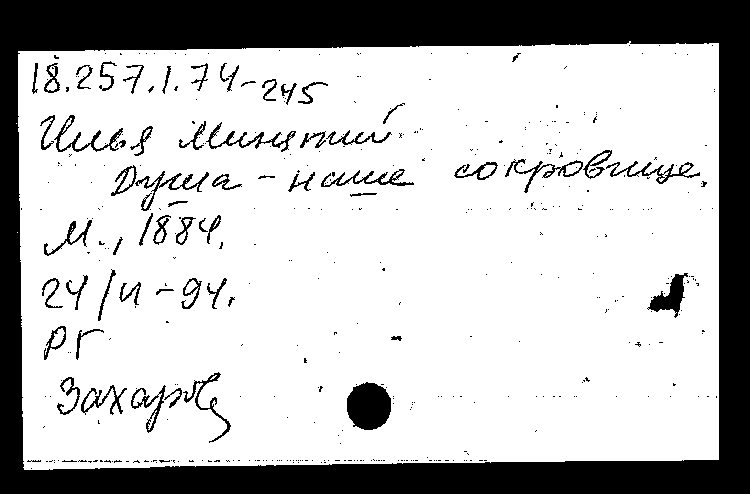 18.257.1.74-245
Илья Минятий
Душа - наше сокровище.
М., 1884.
24/II-94.
РГ
Захаров